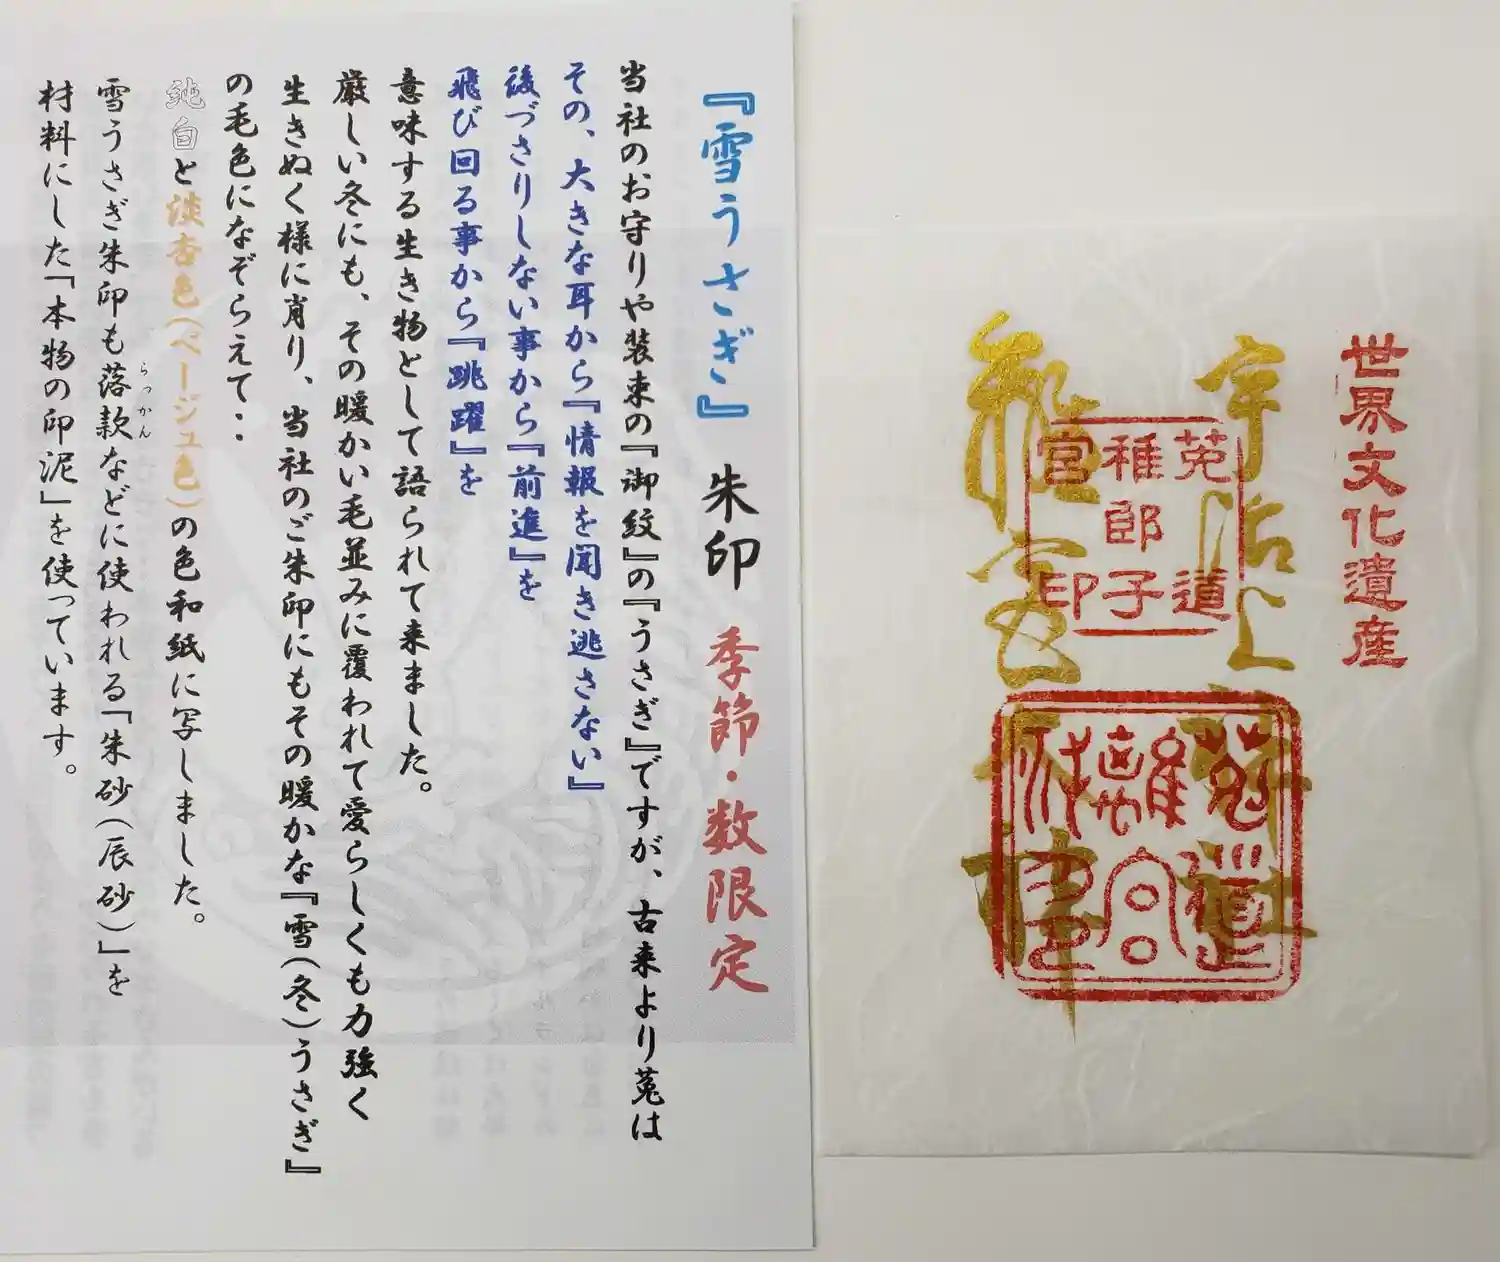 『雪うさぎ』 朱印 季節・数限定
当社のお守りや装束の『御紋』の『うさぎ』ですが、古来より菟は
その、大きな耳から『情報を聞き逃さない』
後づさりしない事から『前進』を
飛び回る事から『跳躍』を
意味する生き物として語られて来ました。
厳しい冬にも、その暖かい毛並みに覆われて愛らしくも力強く
生きぬく様に肖り、当社のご朱印にもその暖かな『雪(冬)うさぎ』
の毛色になぞらえて・・
純白と淡杏色(ベージュ色)の色和紙に写しました。
雪うさぎ朱印も落款などに使われる「朱砂(辰砂)」を
らっかん
材料にした「本物の印泥」を使っています。
世界文化遺産
宇治上神社
菟道
稚郎子
宮印
菟道
離宮